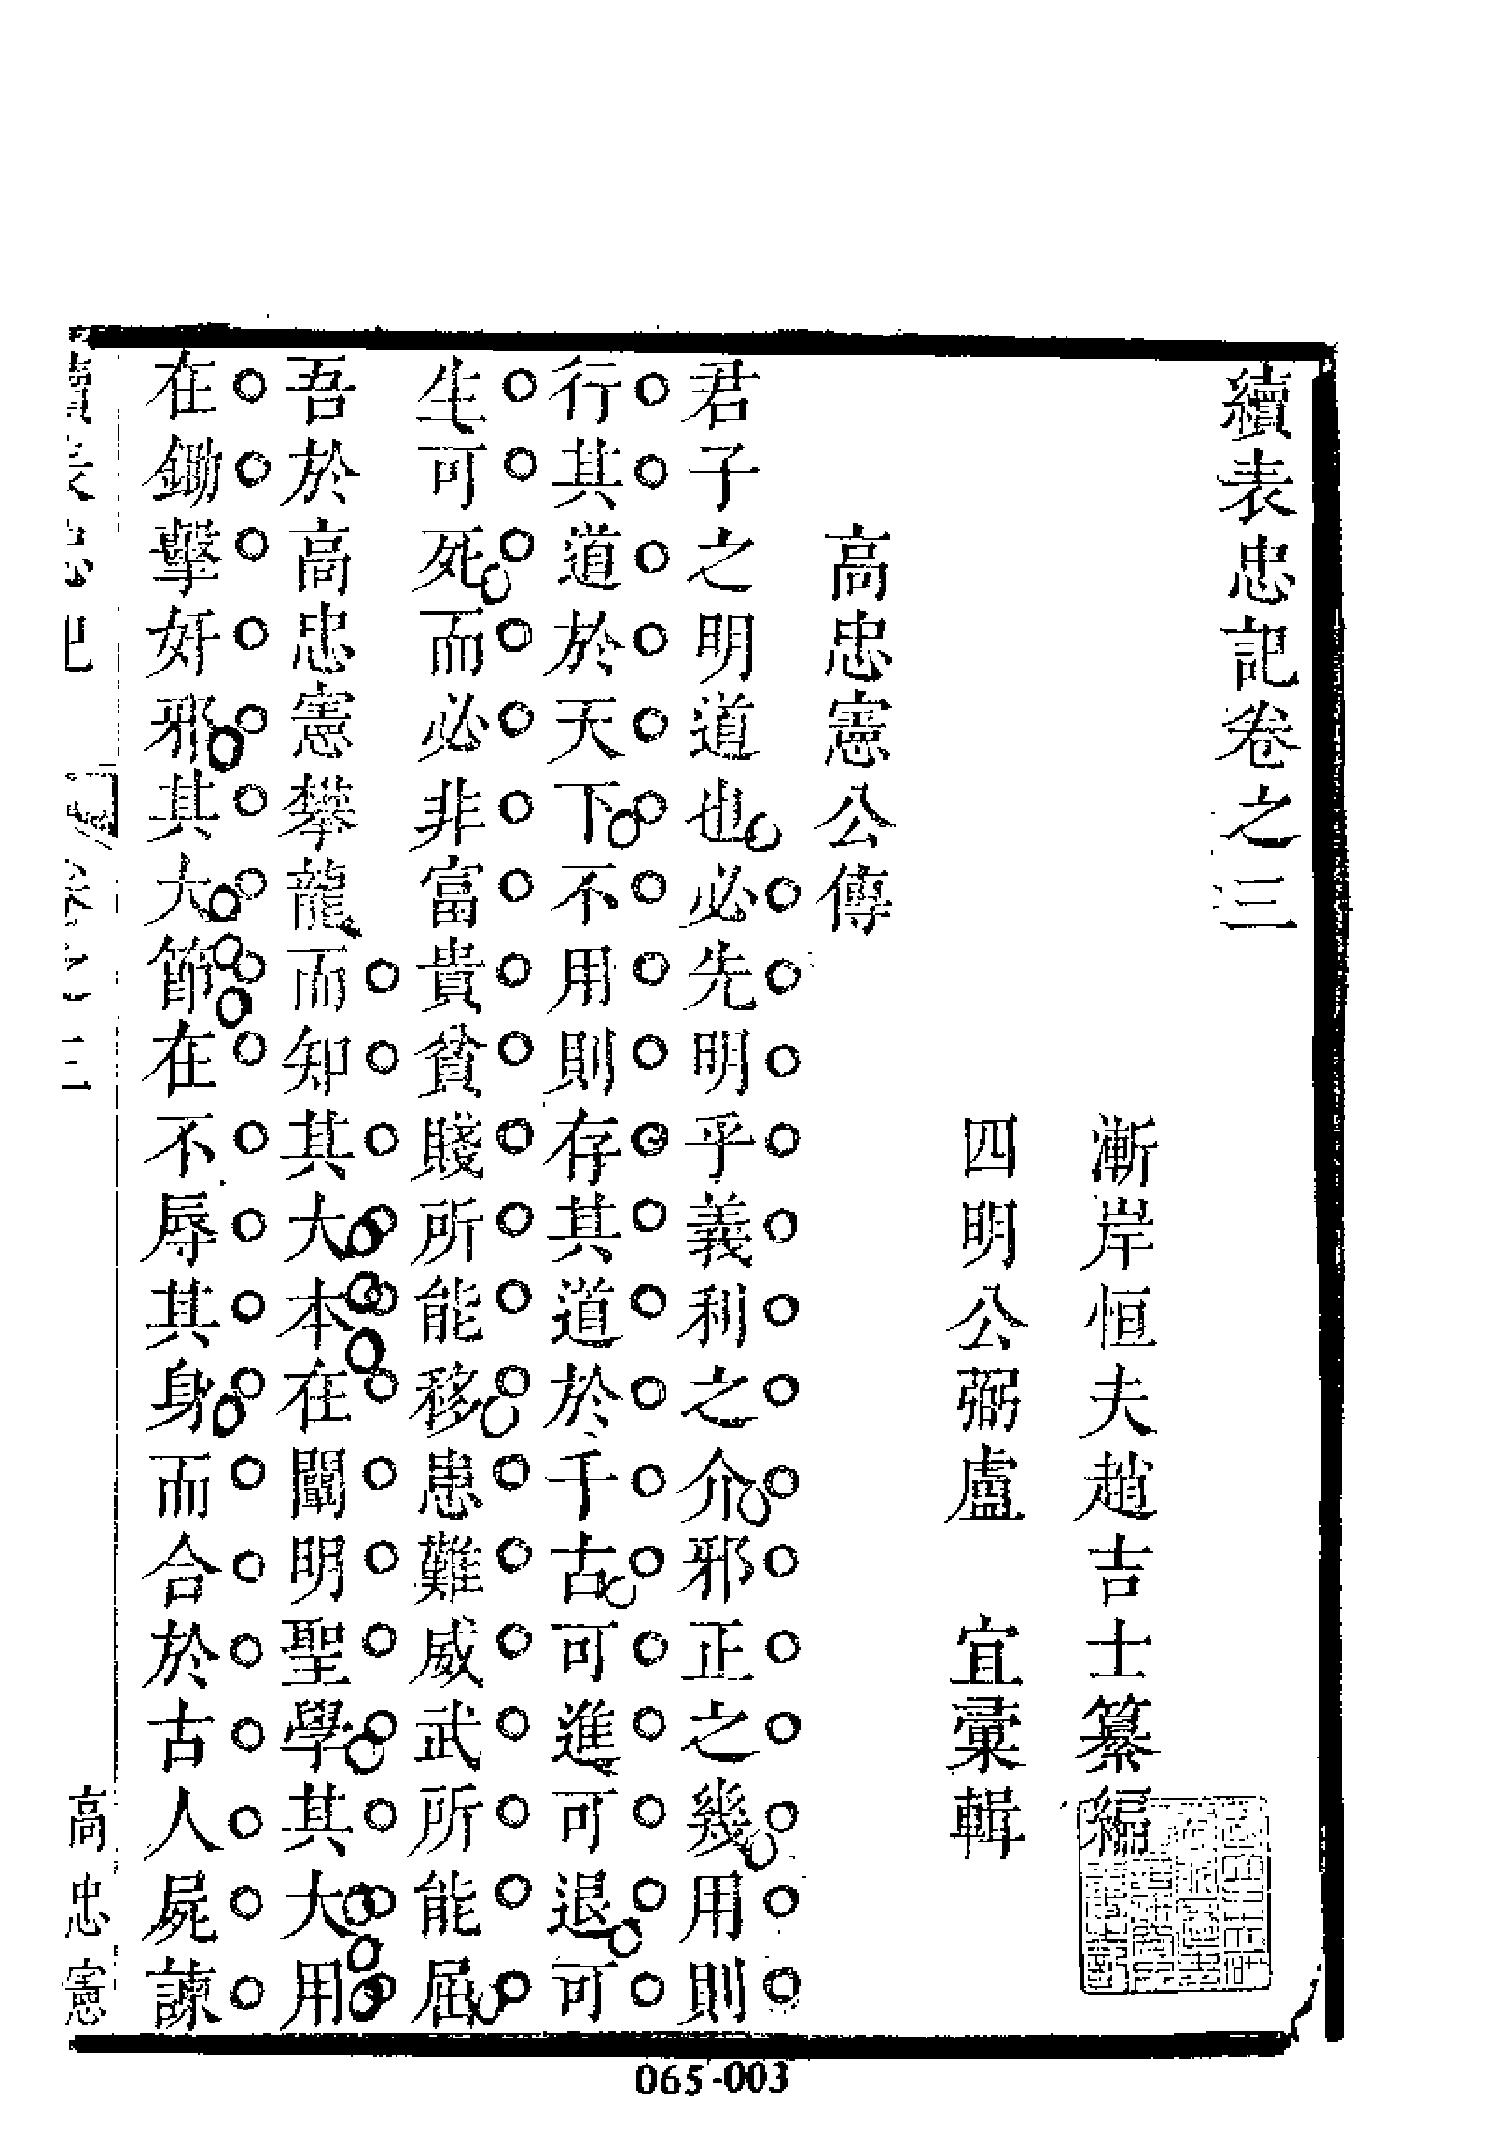 續表忠記卷之三
漸岸恒夫趙吉士纂編
四明公弼盧　宜彙輯
高忠憲公傳
君子之明道也必先明乎義利之介邪正之幾用則
行其道於天下不用則存其道於千古可進可退可
生可死而必非富貴貧賤所能移患難威武所能屈
吾於高忠憲攀龍而知其大本在闡明聖學其大用
在鋤擊奸邪其大節在不辱其身而合於古人屍諫
續表忠記　卷之三　高忠憲
065-003